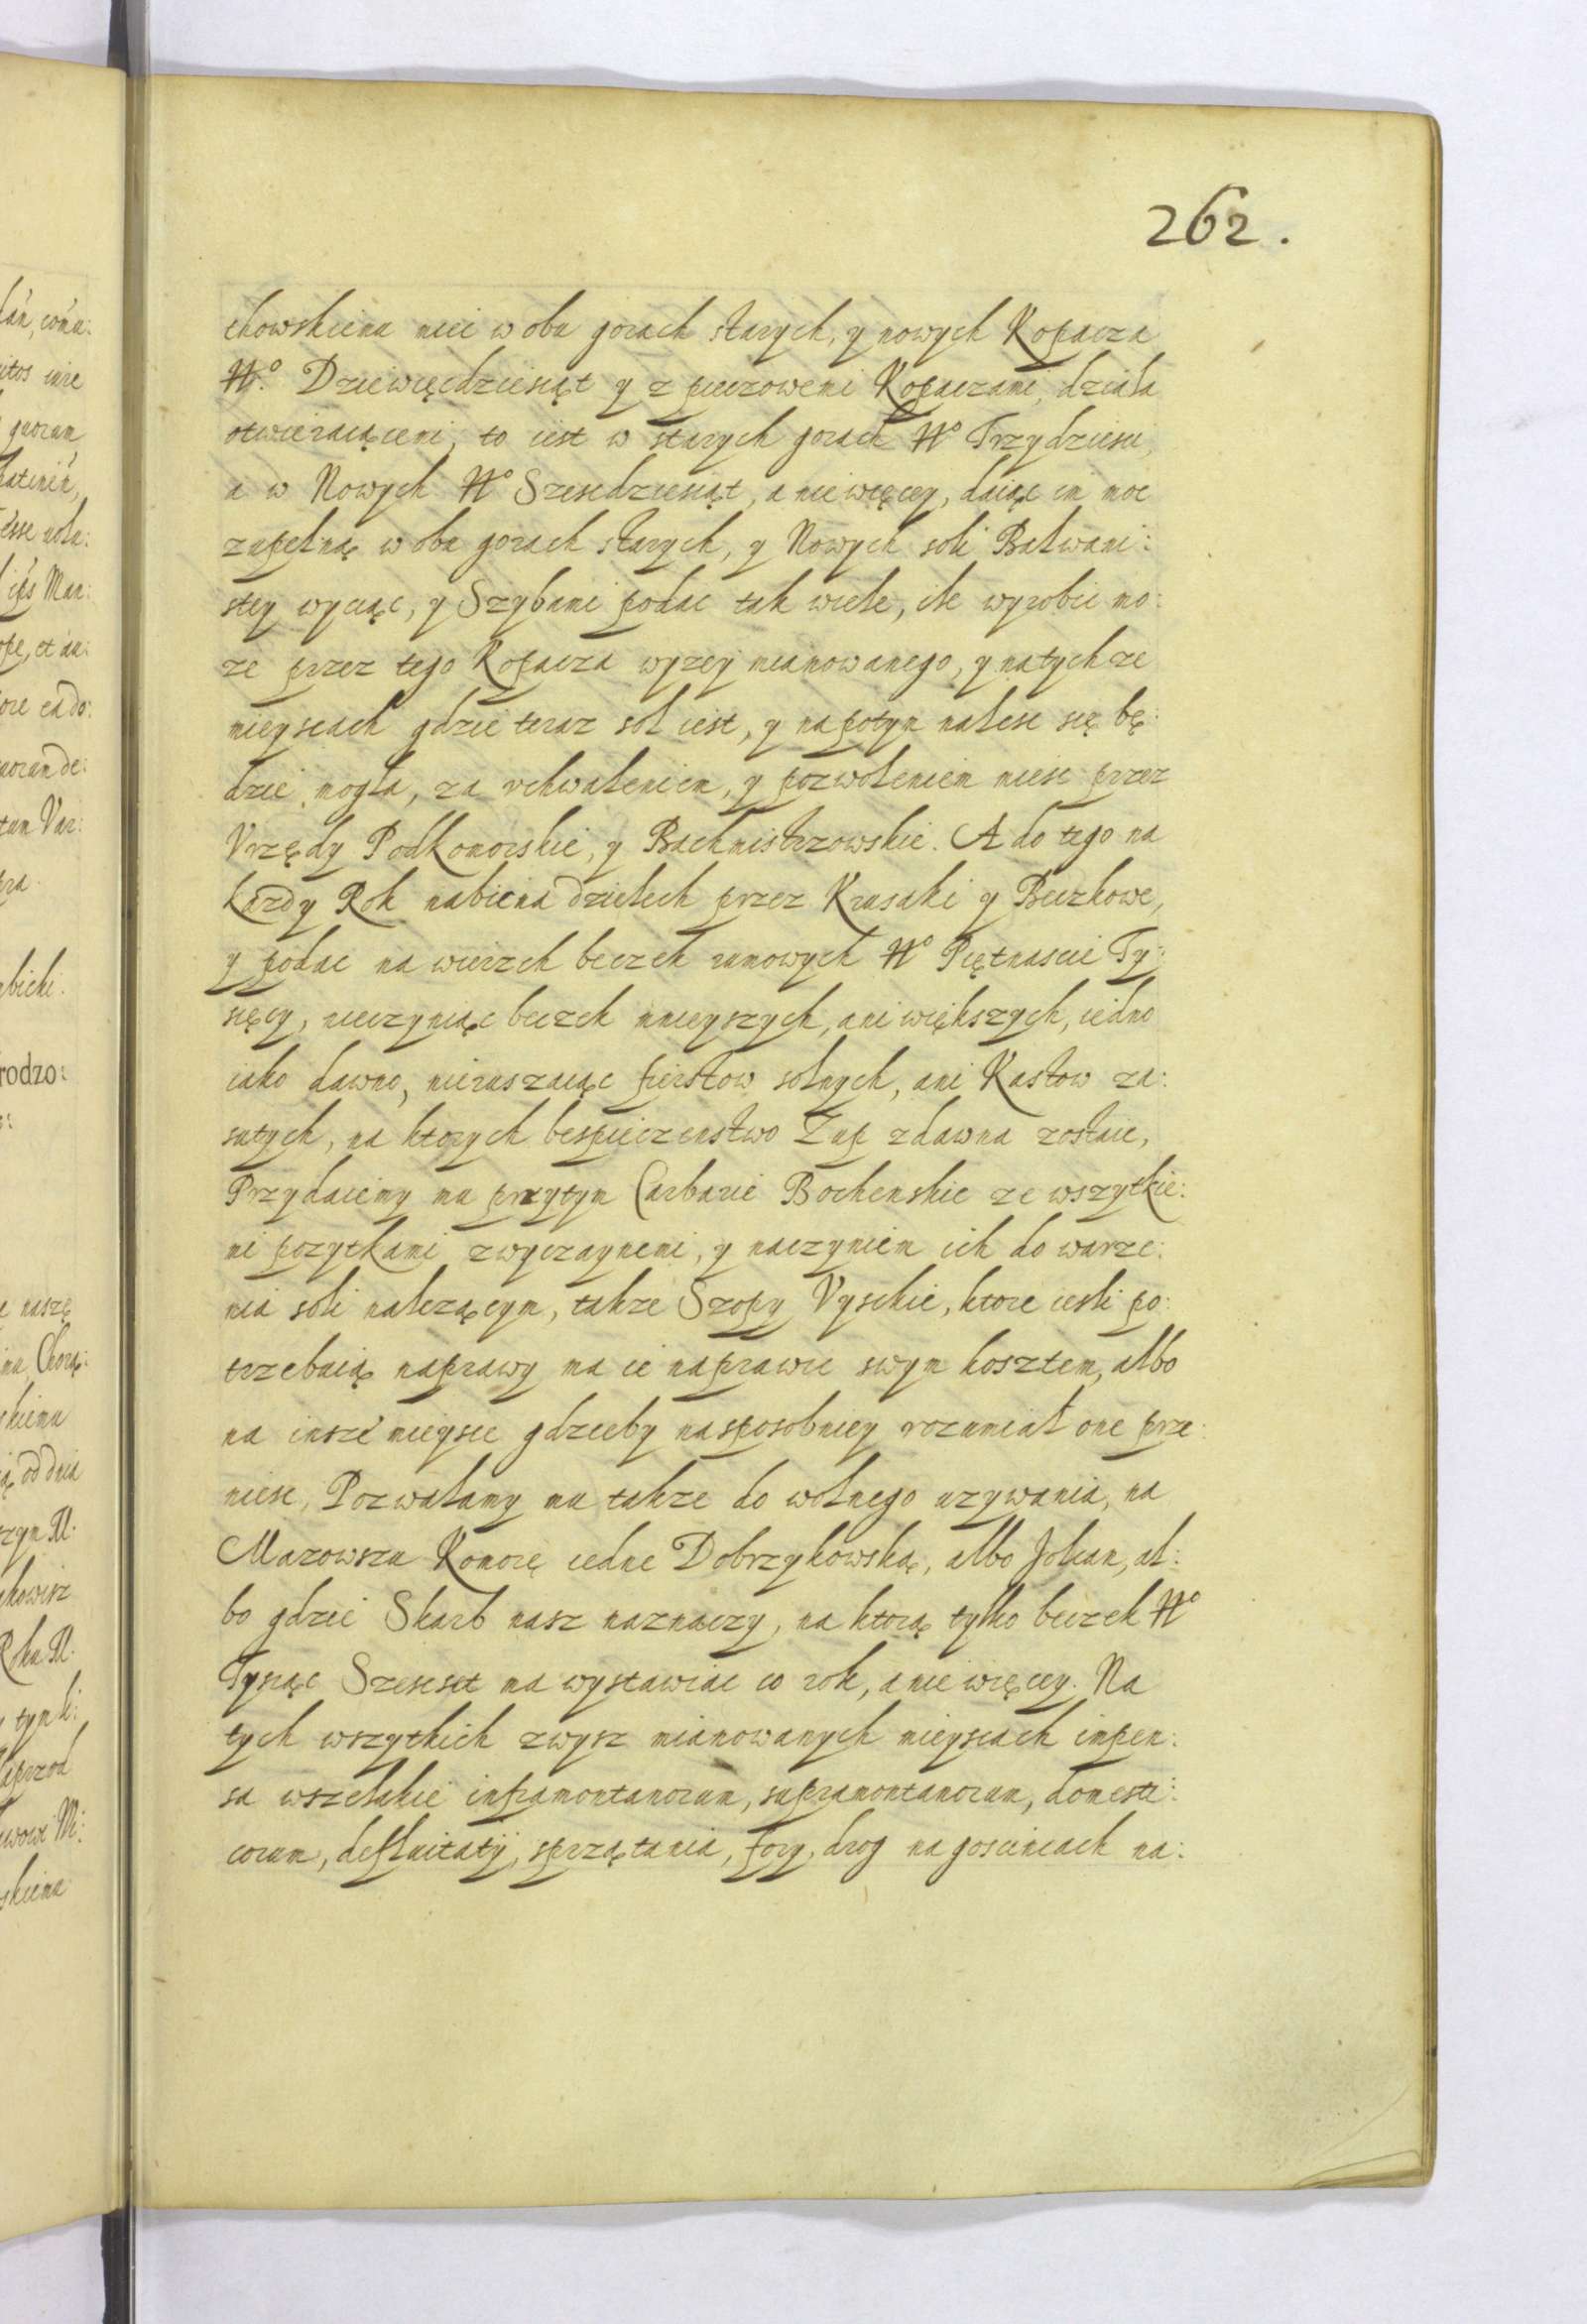 262.
chowskiemu miec w obu gorach starych, y nowych Kopacza
No. Dziewięcdziesiąt y z pieczowemi Kopaczami, dziala
otwieraiącemi, to iest w starych gorach No Trzydziesci,
a w Nowych No Szescdziesiąt, a nie więcey, daiąc im moc
zupełną w obu gorach starych, y Nowych soli Bałwani:
stey wyciąc, y Szybami podac tak wiele, ile wyrobic mo:
ze przez tego Kopacza wyzey mianowanego, y na tychze
mieyscach gdzie teraz sol iest, y napotym nalesc się bę:
dzie mogła, za vchwaleniem, y pozwoleniem miesc przez
Vrzędy Podkomorskie, y Bachmistrzowskie. A do tego na
kazdy Rok nabicna dzielech przez Krusaki y Beczkowe,
y podac na wierzch beczek rumowych No Piętnascie Ty:
sięcy, nieczyniąc beczek mnieyszych, ani większych, iedno
iako dawno, nieruszaiąc fierstow solnych, ani Kastow za:
sutych, na ktorych bespieczenstwo Zup zdawna zostaie,
Przydaiemy mu przytym Carbarie Bochenskie ze wszytkie:
mi pozytkami zwyczaynemi, y naczyniem ich do warze:
nia soli nalezącym, takze Szopy Vyskie, ktore iesli po:
trzebuią naprawy ma ie naprawic swym kosztem, albo
na insze mieysce gdzieby nasposobniey rozumiał one prze:
niesc, Pozwalamy mu takze do wolnego uzywania, na
Mazowszu Komorę iedne Dobrzykowską, albo Jolcan, al:
bo gdzie Skarb nasz naznaczy, na ktorą tylko beczek No
Tysiąc Szescset ma wystawiac co rok, a nie więcey. Na
tych wszytkich zwysz mianowanych mieyscach impen:
sa wszelakie inframontanorum, supramontanorum, domesti:
corum, defluitatij, sprzątania, fory, drog na goscincach na: